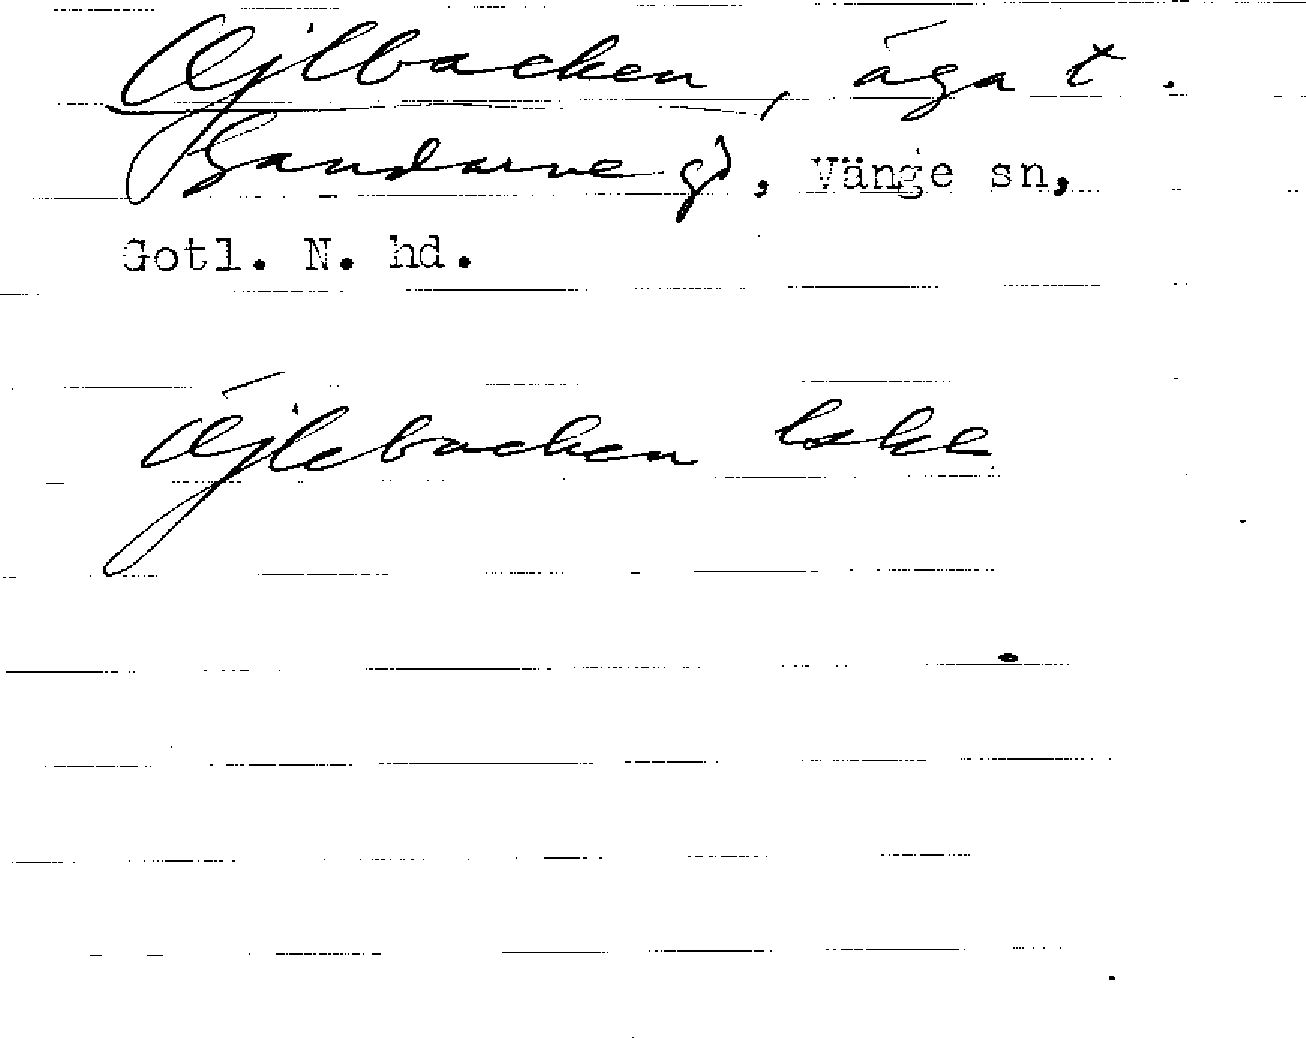 Öjlbacken, äga t.
Bandarve gd, Vänge sn,
Gotl. N. hd.
Öjlebacken Lske